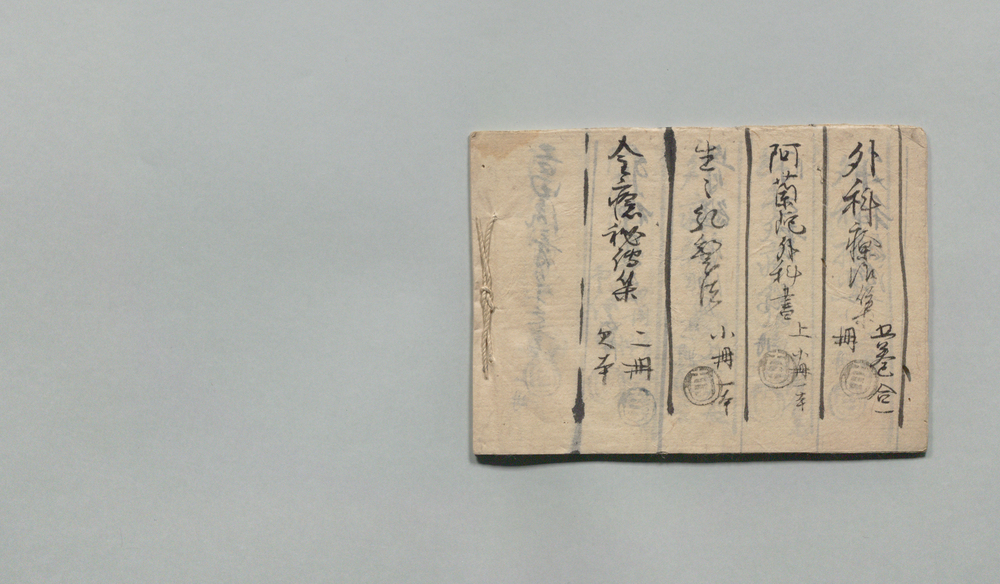 外科療治集
五巻合一
冊
阿蘭陀外科書
上小冊一本
生々乳製法
小冊一本
金瘡秘傳集
二冊
欠本